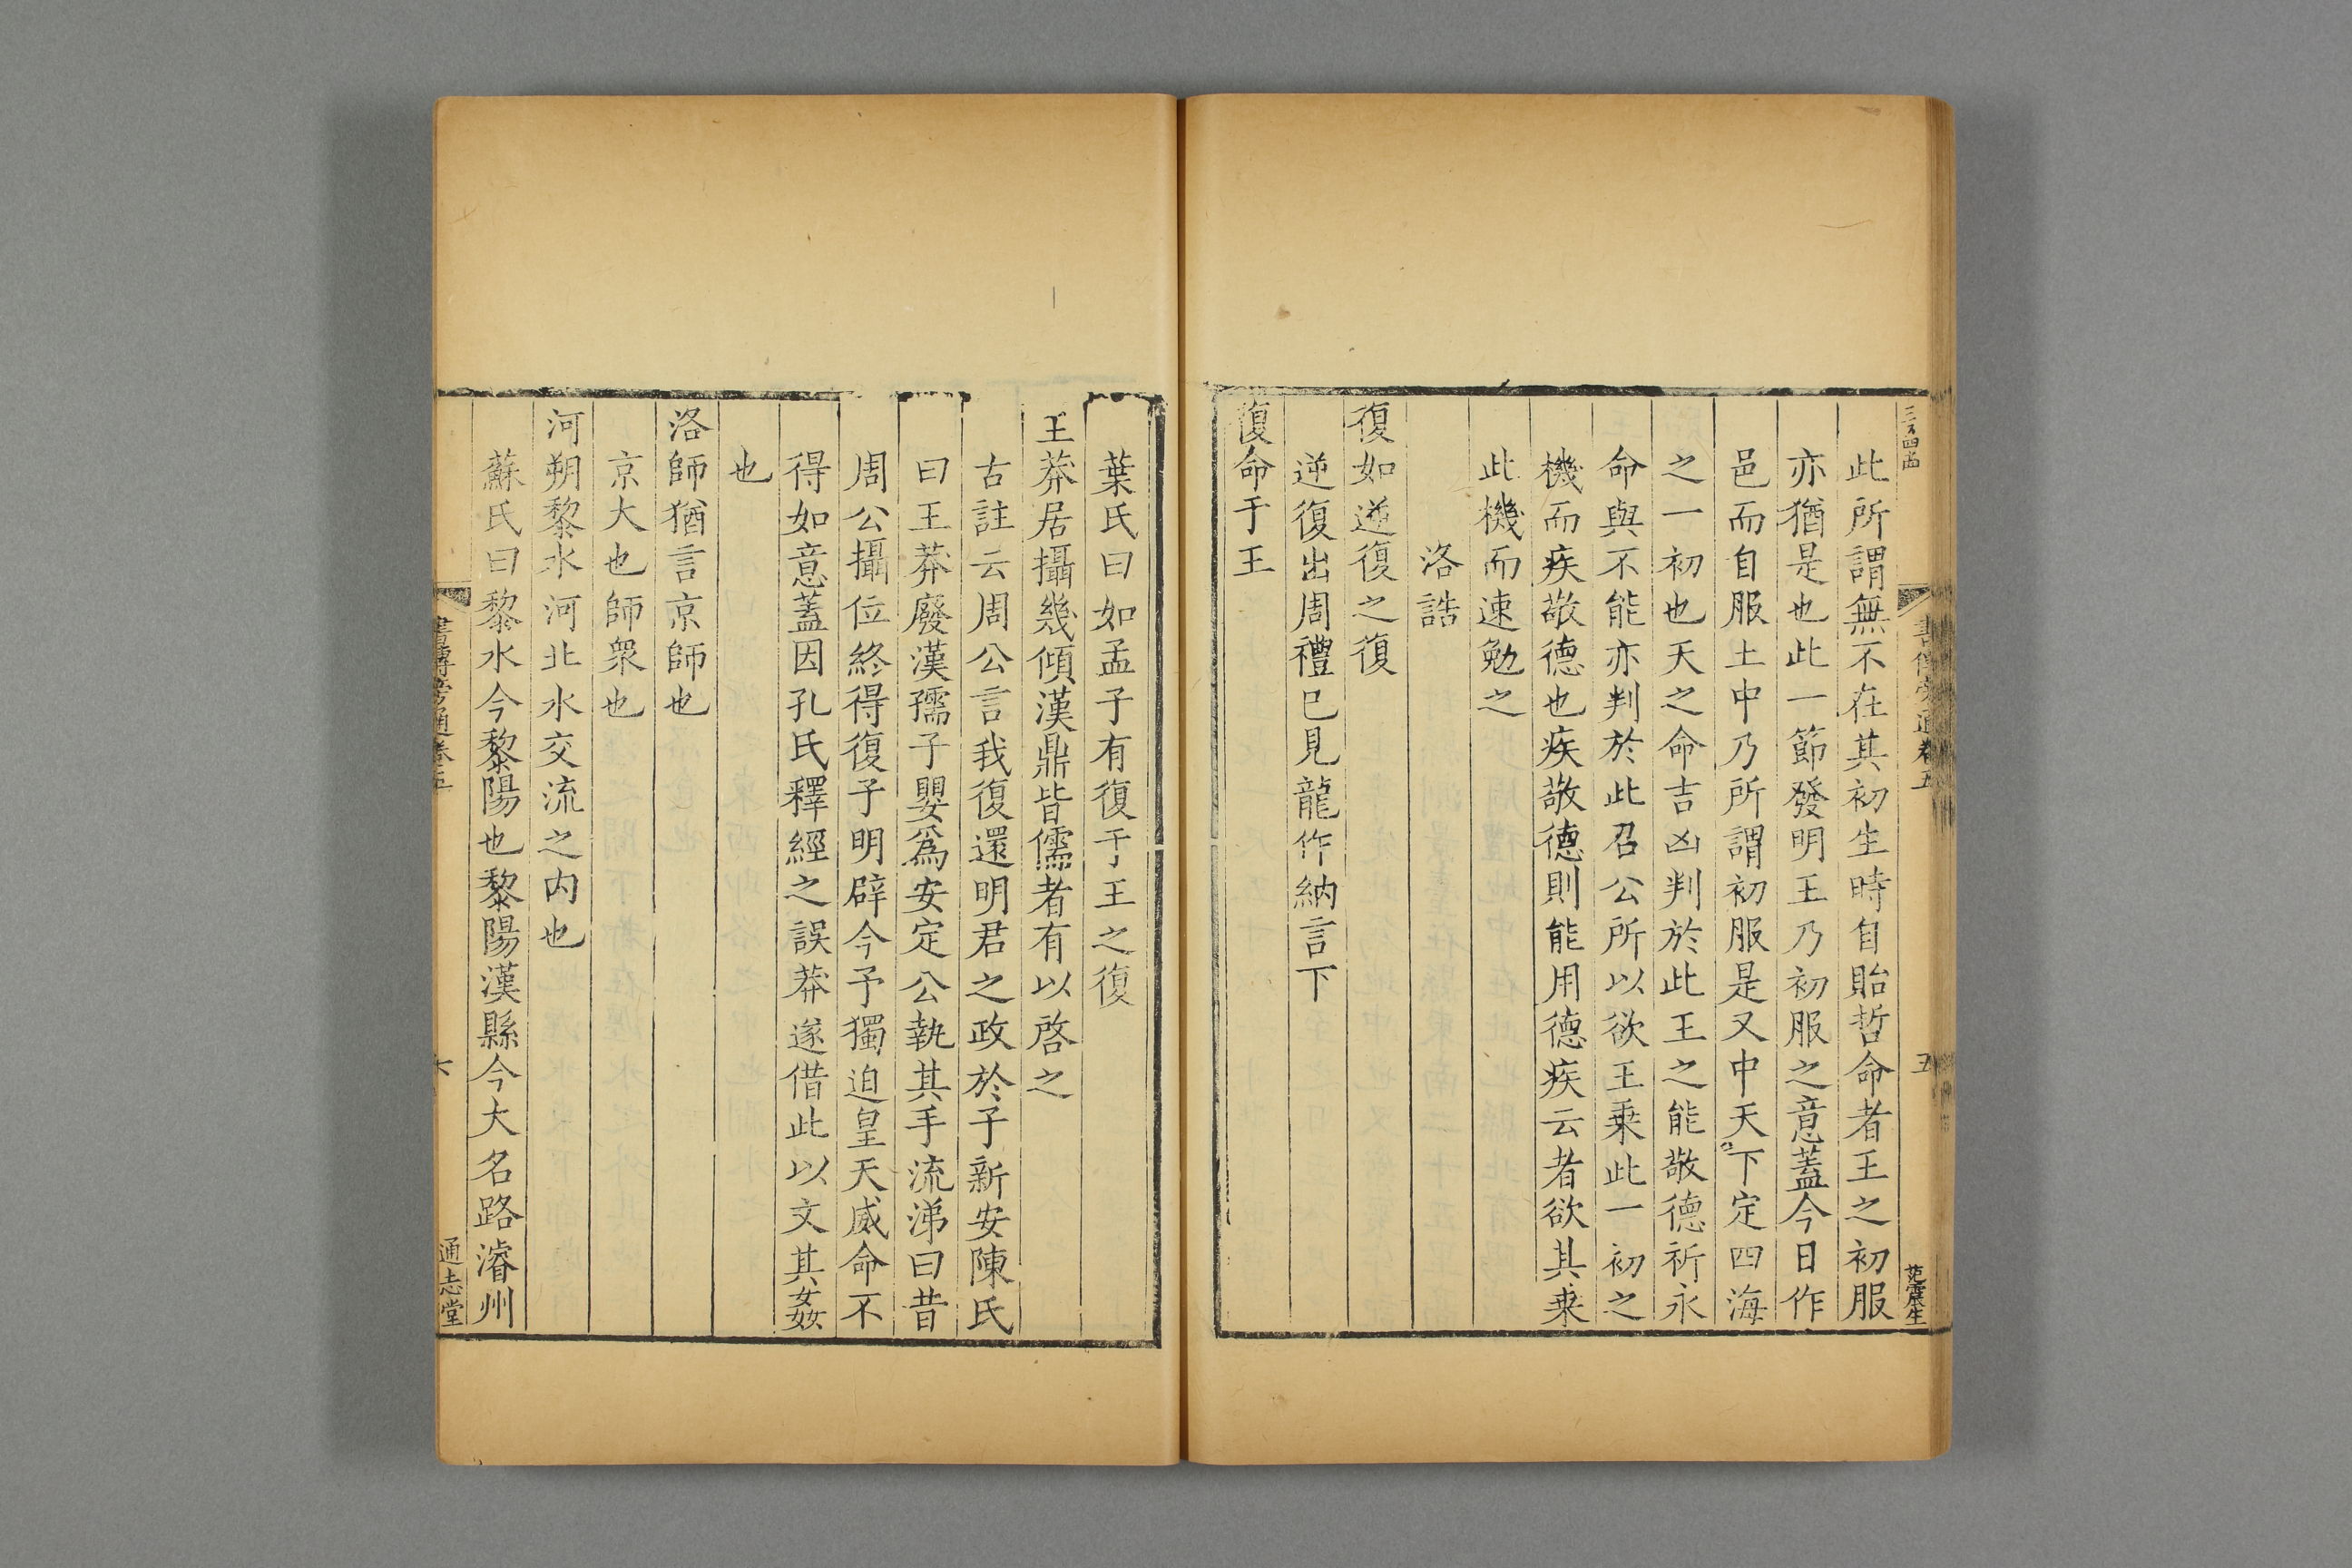 書傳旁通卷五
五
范震生
此所謂無不在其初生時自貽哲命者王之初服
亦猶是也此一節發明王乃初服之意蓋今日作
邑而自服土中乃所謂初服是又中天下定四海
之一初也天之命吉凶判於此王之能敬德祈永
命與不能亦判於此召公所以欲王乗此一初之
機而疾敬德也疾敬德則能用德疾云者欲其乗
此機而速勉之
洛誥
復如逆復之復
逆復出周禮巳見龍作納言下
復命于王
葉氏曰如孟子有復于王之復
王莽居攝幾傾漢鼎皆儒者有以啓之
古註云周公言我復還明君之政於子新安陳氏
曰王莽廢漢孺子嬰爲安定公執其手流涕曰昔
周公攝位終得復子明辟今予獨迫皇天威命不
得如意蓋因孔氏釋經之誤莽遂借此以文其姦
也
洛師猶言京師也
京大也師衆也
河朔黎水河北水交流之内也
蘇氏曰黎水今黎陽也黎陽漢縣今大名路濬州
書傳旁通卷五
六
通志堂